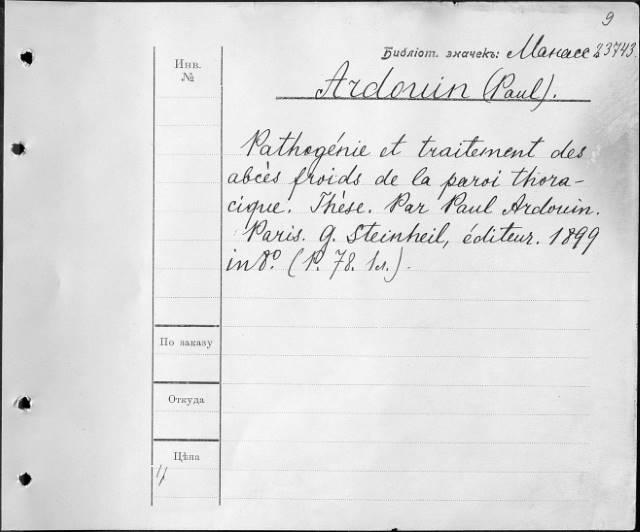 9
Инв.
№
Библіот. значекъ: Манасе 23743.
Ardouin (Paul).
Pathogénie et traitement des
abcès froids de la paroi thora-
cique. Thèse. Par Paul Ardouin.
Paris. G. Steinheil, éditeur. 1899
in 8º. (P. 78. 1 л.).
По заказу
Откуда
Цѣна